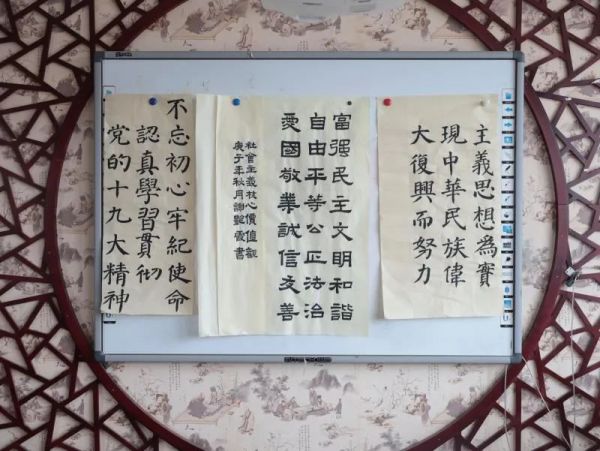 主義思想為實
現中華民族偉
大復興而努力
富强民主文明和諧
自由平等公正法治
愛國敬業誠信友善
社會主義核心價值觀
庚子年秋月書
不忘初心牢紀使命
認真學習貫彻
党的十九大精神